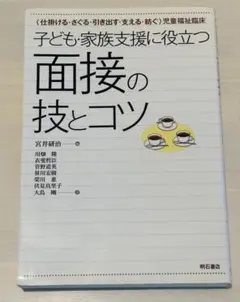 〈仕掛ける・さぐる・引き出す・支える・紡ぐ〉児童福祉臨床
子ども・家族支援に役立つ
面接の
技とコツ
宮井研治 編
川畑 隆
衣斐哲臣
菅野道英
笹川宏樹
梁川 惠
伏見真里子
大島 剛 著
明石書店